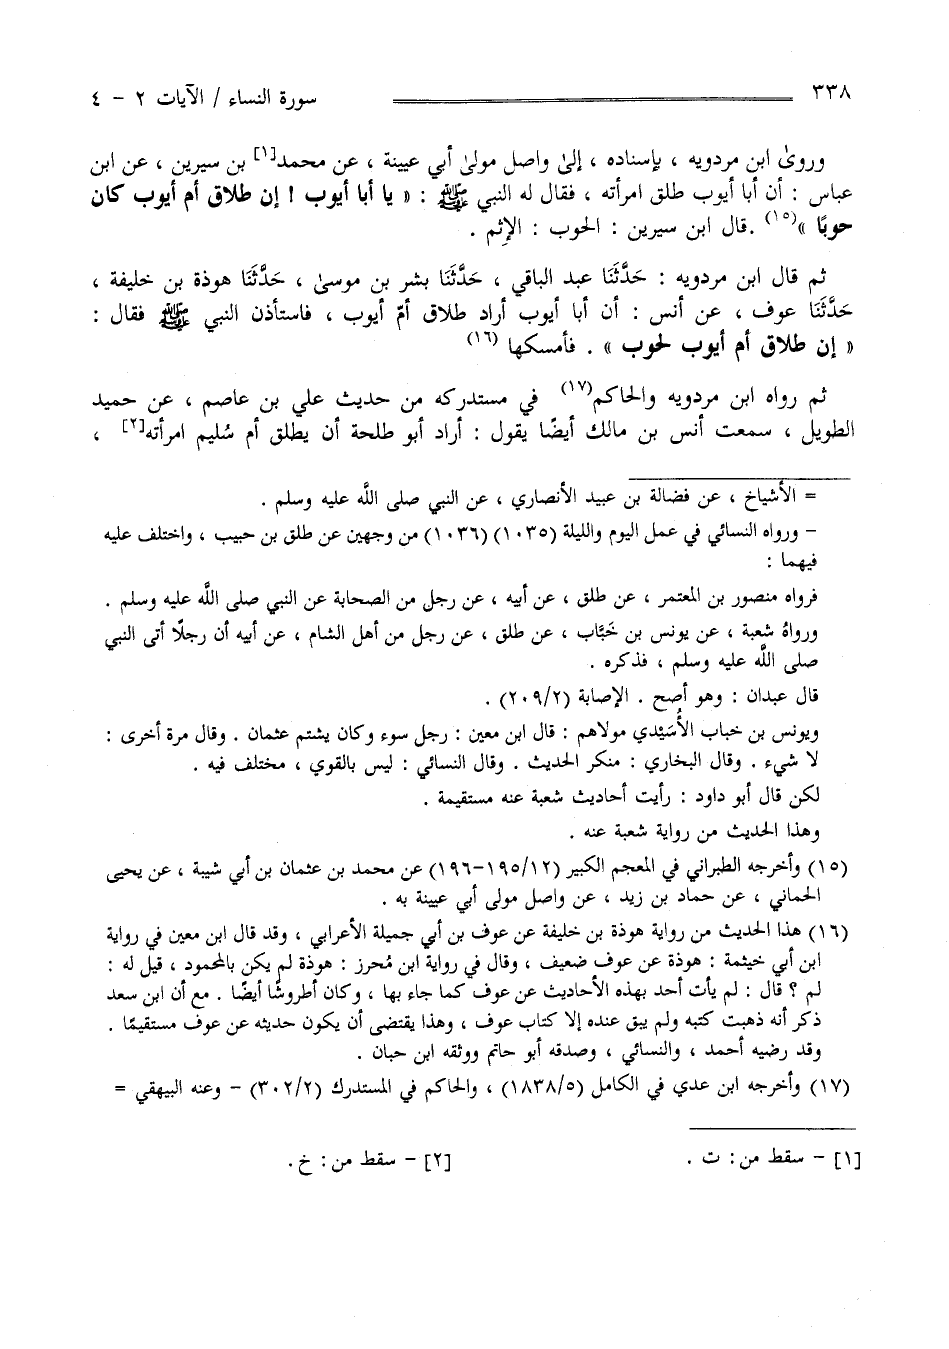 ٣٣٨ سورة النساء / الآيات ٢ - ٤
وروىٰ ابن مردويه ، بإسناده ، إلىٰ واصل مولىٰ أبي عيينة ، عن محمد[١] بن سيرين ، عن ابن
عباس : أن أبا أيوب طلق امرأته ، فقال له النبي ﷺ : « يا أبا أيوب ! إن طلاق أم أيوب كان
حوبًا »(١٥) .قال ابن سيرين : الحوب : الإثم .
ثم قال ابن مردويه : حَدَّثَنَا عبد الباقي ، حَدَّثَنَا بشر بن موسىٰ ، حَدَّثَنَا هوذة بن خليفة ،
حَدَّثَنَا عوف ، عن أنس : أن أبا أيوب أراد طلاق أمّ أيوب ، فاستأذن النبي ﷺ فقال :
« إن طلاق أم أيوب لحوب » . فأمسكها (١٦)
ثم رواه ابن مردويه والحاكم(١٧) في مستدركه من حديث علي بن عاصم ، عن حميد
الطويل ، سمعت أنس بن مالك أيضًا يقول : أراد أبو طلحة أن يطلق أم سُليم امرأته[٢] ،
= الأشياخ ، عن فضالة بن عبيد الأنصاري ، عن النبي صلى اللَّه عليه وسلم .
- ورواه النسائي في عمل اليوم والليلة (١٠٣٥) (١٠٣٦) من وجهين عن طلق بن حبيب ، واختلف عليه
فيهما :
فرواه منصور بن المعتمر ، عن طلق ، عن أبيه ، عن رجل من الصحابة عن النبي صلى اللَّه عليه وسلم .
ورواهُ شعبة ، عن يونس بن خَبَّاب ، عن طلق ، عن رجل من أهل الشام ، عن أبيه أن رجلًا أتى النبي
صلى اللَّه عليه وسلم ، فذكره .
قال عبدان : وهو أصح . الإصابة (٢٠٩/٢) .
ويونس بن خباب الأُسَيْدي مولاهم : قال ابن معين : رجل سوء وكان يشتم عثمان . وقال مرة أخرى :
لا شيء . وقال البخاري : منكر الحديث . وقال النسائي : ليس بالقوي ، مختلف فيه .
لكن قال أبو داود : رأيت أحاديث شعبة عنه مستقيمة .
وهذا الحديث من رواية شعبة عنه .
(١٥) وأخرجه الطبراني في المعجم الكبير (١٩٥/١٢-١٩٦) عن محمد بن عثمان بن أبي شيبة ، عن يحيى
الحماني ، عن حماد بن زيد ، عن واصل مولى أبي عيينة به .
(١٦) هذا الحديث من رواية هوذة بن خليفة عن عوف بن أبي جميلة الأعرابي ، وقد قال ابن معين في رواية
ابن أبي خيثمة : هوذة عن عوف ضعيف ، وقال في رواية ابن مُحرز : هوذة لم يكن بالمحمود ، قيل له :
لم ؟ قال : لم يأت أحد بهذه الأحاديث عن عوف كما جاء بها ، وكان أطروشًا أيضًا . مع أن ابن سعد
ذكر أنه ذهبت كتبه ولم يبق عنده إلا كتاب عوف ، وهذا يقتضى أن يكون حديثه عن عوف مستقيمًا .
وقد رضيه أحمد ، والنسائي ، وصدقه أبو حاتم ووثقه ابن حبان .
(١٧) وأخرجه ابن عدي في الكامل (١٨٣٨/٥) ، والحاكم في المستدرك (٣٠٢/٢) - وعنه البيهقي =
[١] - سقط من: ت . [٢] - سقط من: خ.